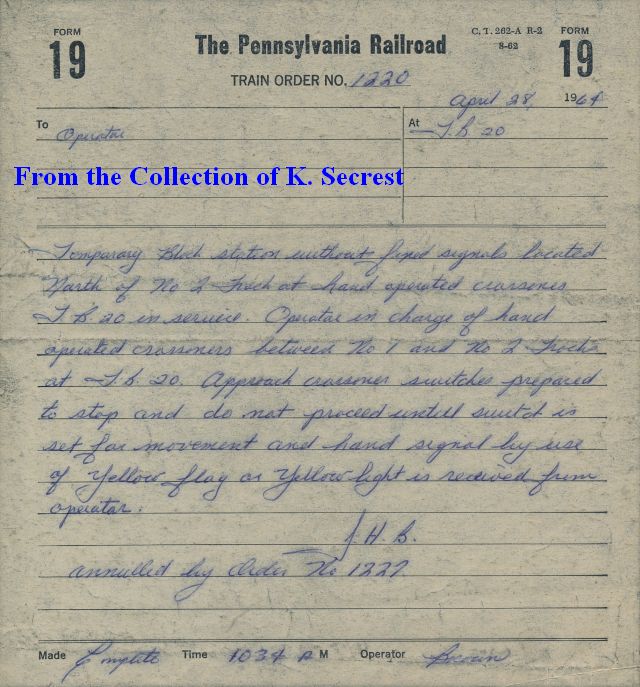 FORM
19
The Pennsylvania Railroad
C. T. 262-A R-2
8-62
FORM
19
TRAIN ORDER NO. 1220
April 28, 1964
To Operator
At T.B. 20
From the Collection of K. Secrest
Temparary Block station without fixed signals located
North of No 2 Track at hand operated crossovers
T.B. 20 in service. Operator in charge of hand
operated crossovers between No 1 and No 2 Tracks
at T.B. 20. Approach crossover switches prepared
to stop and do not proceed untill switch is
set for movement and hand signal by use
of Yellow flag or Yellow light is received from
operator.
J. H. B.
annulled by Order No 1227
Made Complete Time 1034 M Operator Brown